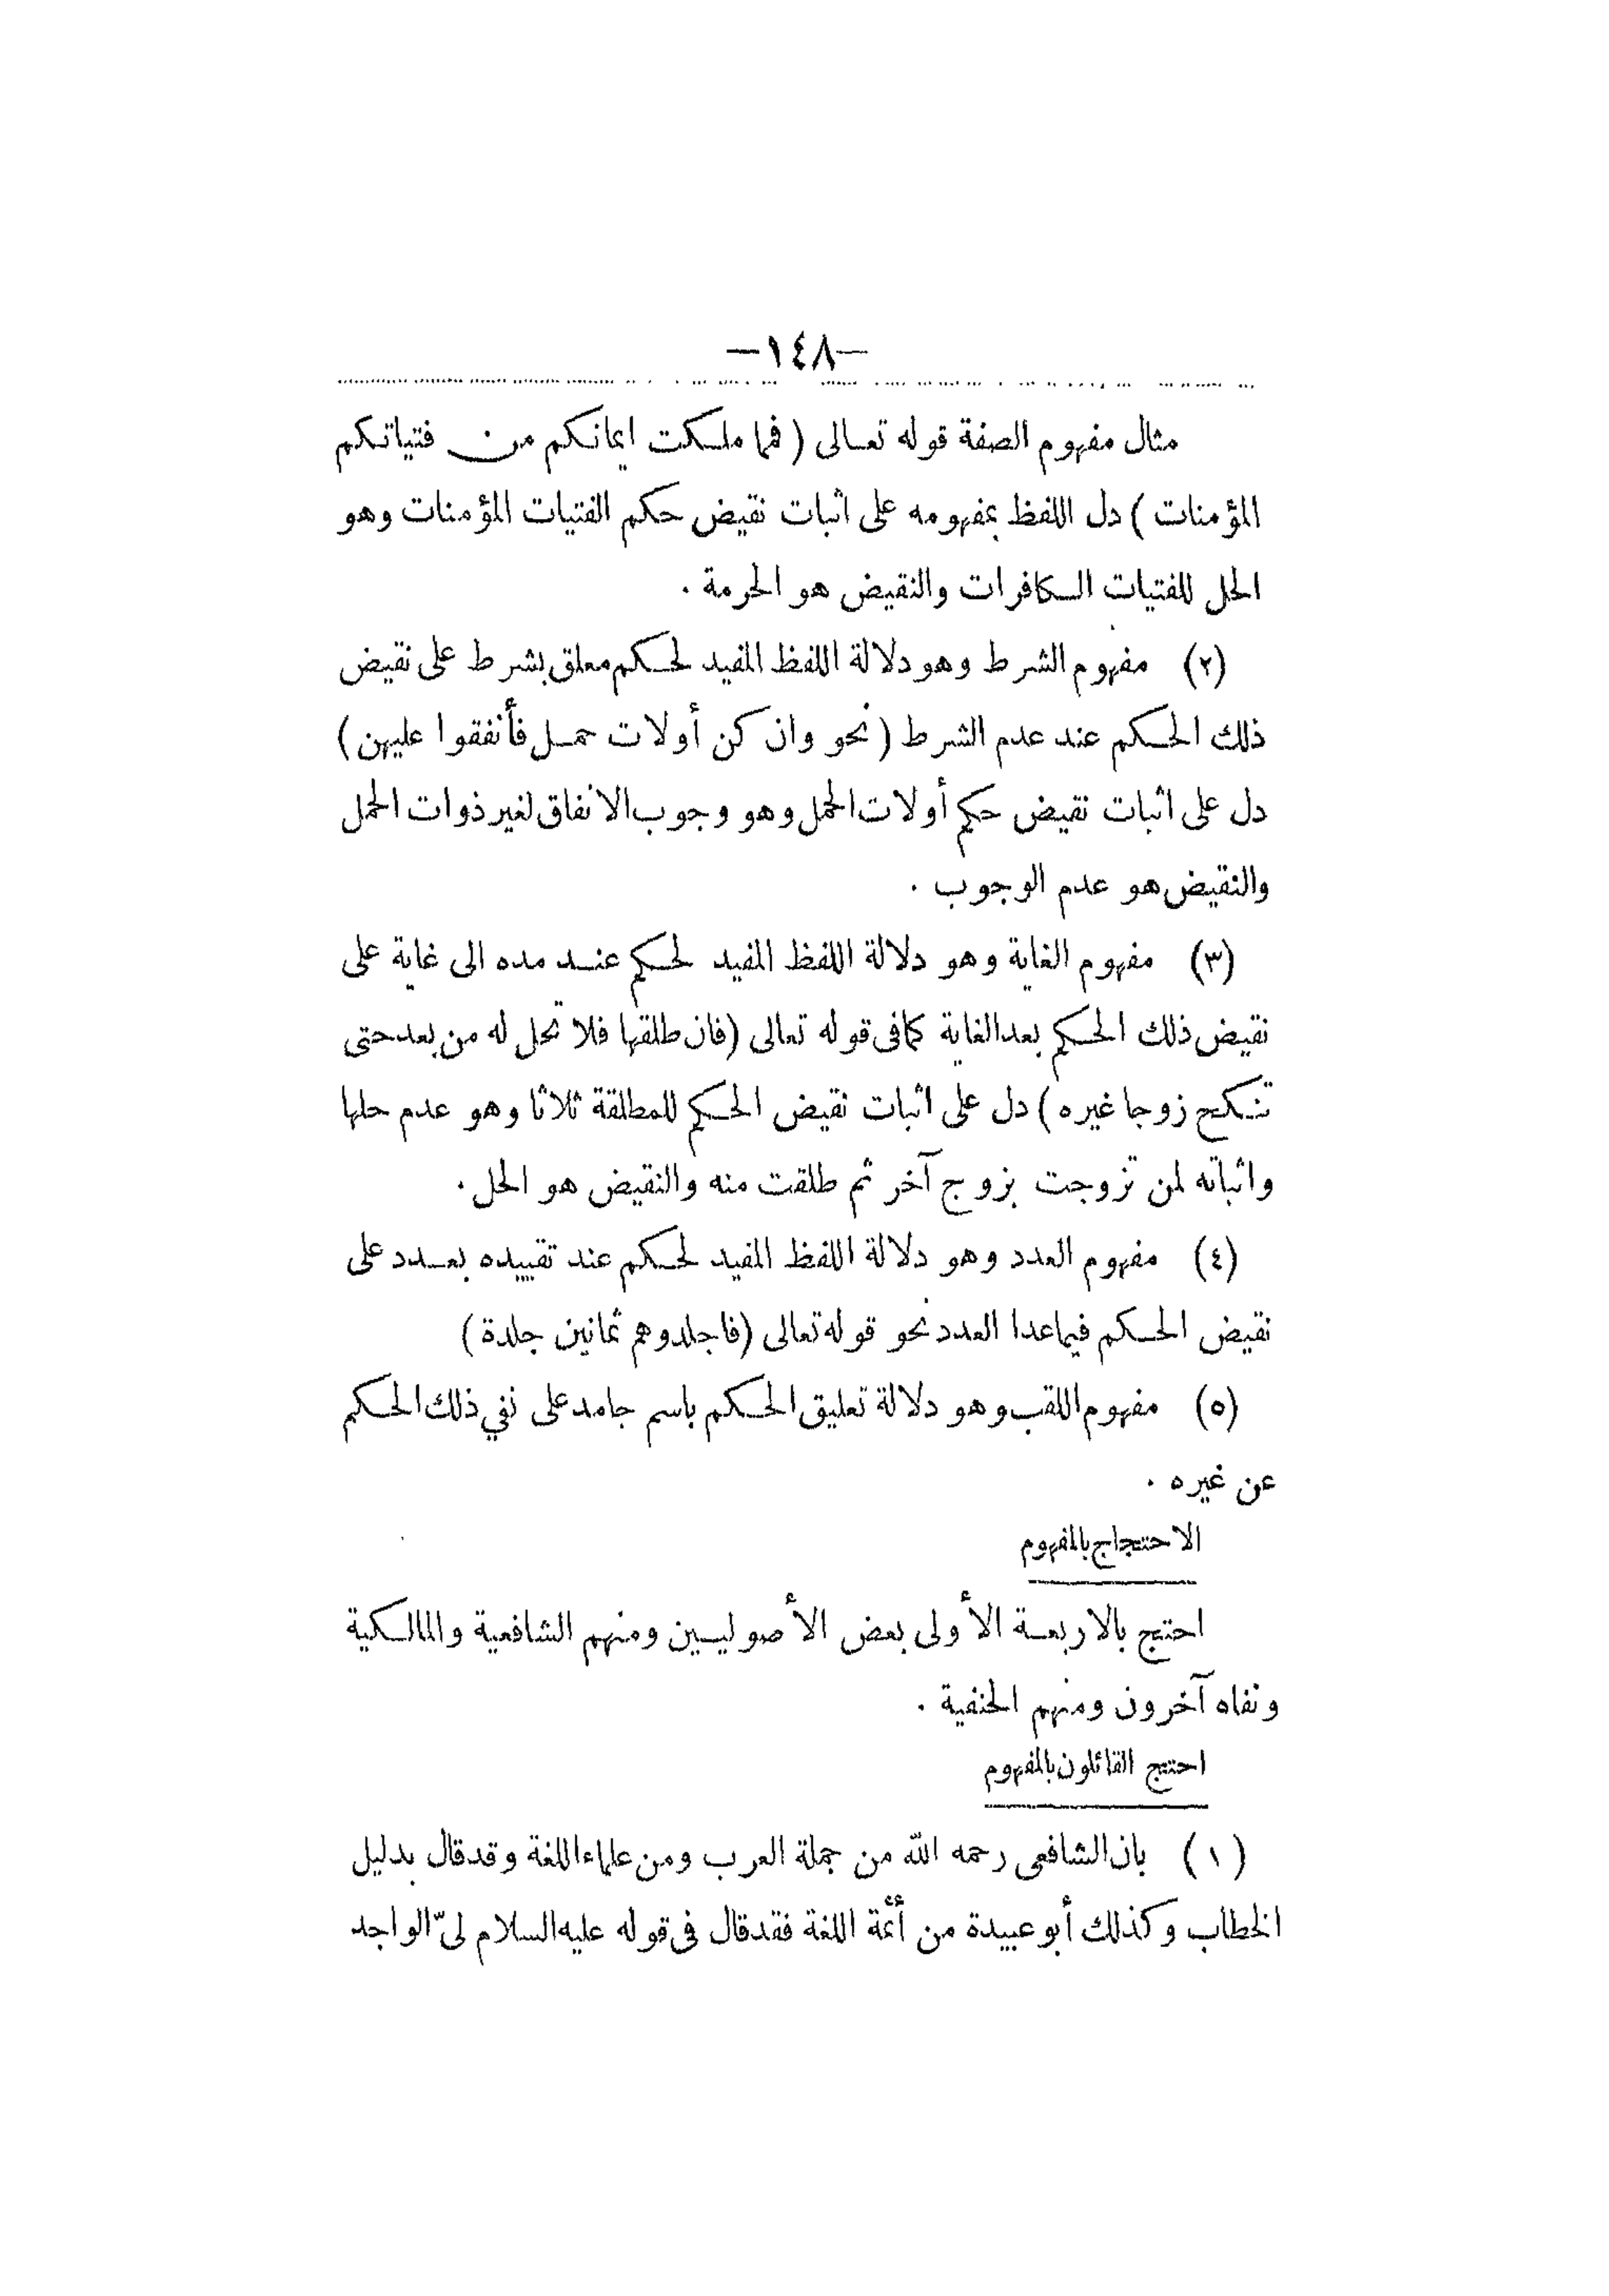 —١٤٨—
مثال مفهوم الصفة قوله تعالى ( فما ملكت ايمانكم من فتياتكم
المؤمنات ) دل اللفظ بمفهومه على اثبات نقيض حكم الفتيات المؤمنات وهو
الحل للفتيات الكافرات والنقيض هو الحرمة .
(٢) مفهوم الشرط وهو دلالة اللفظ المفيد لحكم معلق بشرط على نقيض
ذلك الحكم عند عدم الشرط ( نحو وان كن أولات حمل فأنفقوا عليهن )
دل على اثبات نقيض حكم أولات الحمل وهو وجوب الانفاق لغير ذوات الحمل
والنقيض هو عدم الوجوب .
(٣) مفهوم الغاية وهو دلالة اللفظ المفيد لحكم عند مده الى غاية على
نقيض ذلك الحكم بعد الغاية كما فى قوله تعالى (فان طلقها فلا تحل له من بعد حتى
تنكح زوجا غيره ) دل على اثبات نقيض الحكم للمطلقة ثلاثا وهو عدم حلها
واثباته لمن تزوجت بزوج آخر ثم طلقت منه والنقيض هو الحل .
(٤) مفهوم العدد وهو دلالة اللفظ المفيد لحكم عند تقييده بعدد على
نقيض الحكم فيما عدا العدد نحو قوله تعالى (فاجلدوهم ثمانين جلدة )
(٥) مفهوم اللقب وهو دلالة تعليق الحكم باسم جامد على نفي ذلك الحكم
عن غيره .
الاحتجاج بالمفهوم
احتج بالاربعة الأولى بعض الأصوليين ومنهم الشافعية والمالكية
ونفاه آخرون ومنهم الحنفية .
احتج القائلون بالمفهوم
(١) بان الشافعى رحمه الله من جملة العرب ومن علماء اللغة وقد قال بدليل
الخطاب وكذلك أبو عبيدة من أئمة اللغة فقد قال فى قوله عليه السلام لىّ الواجد